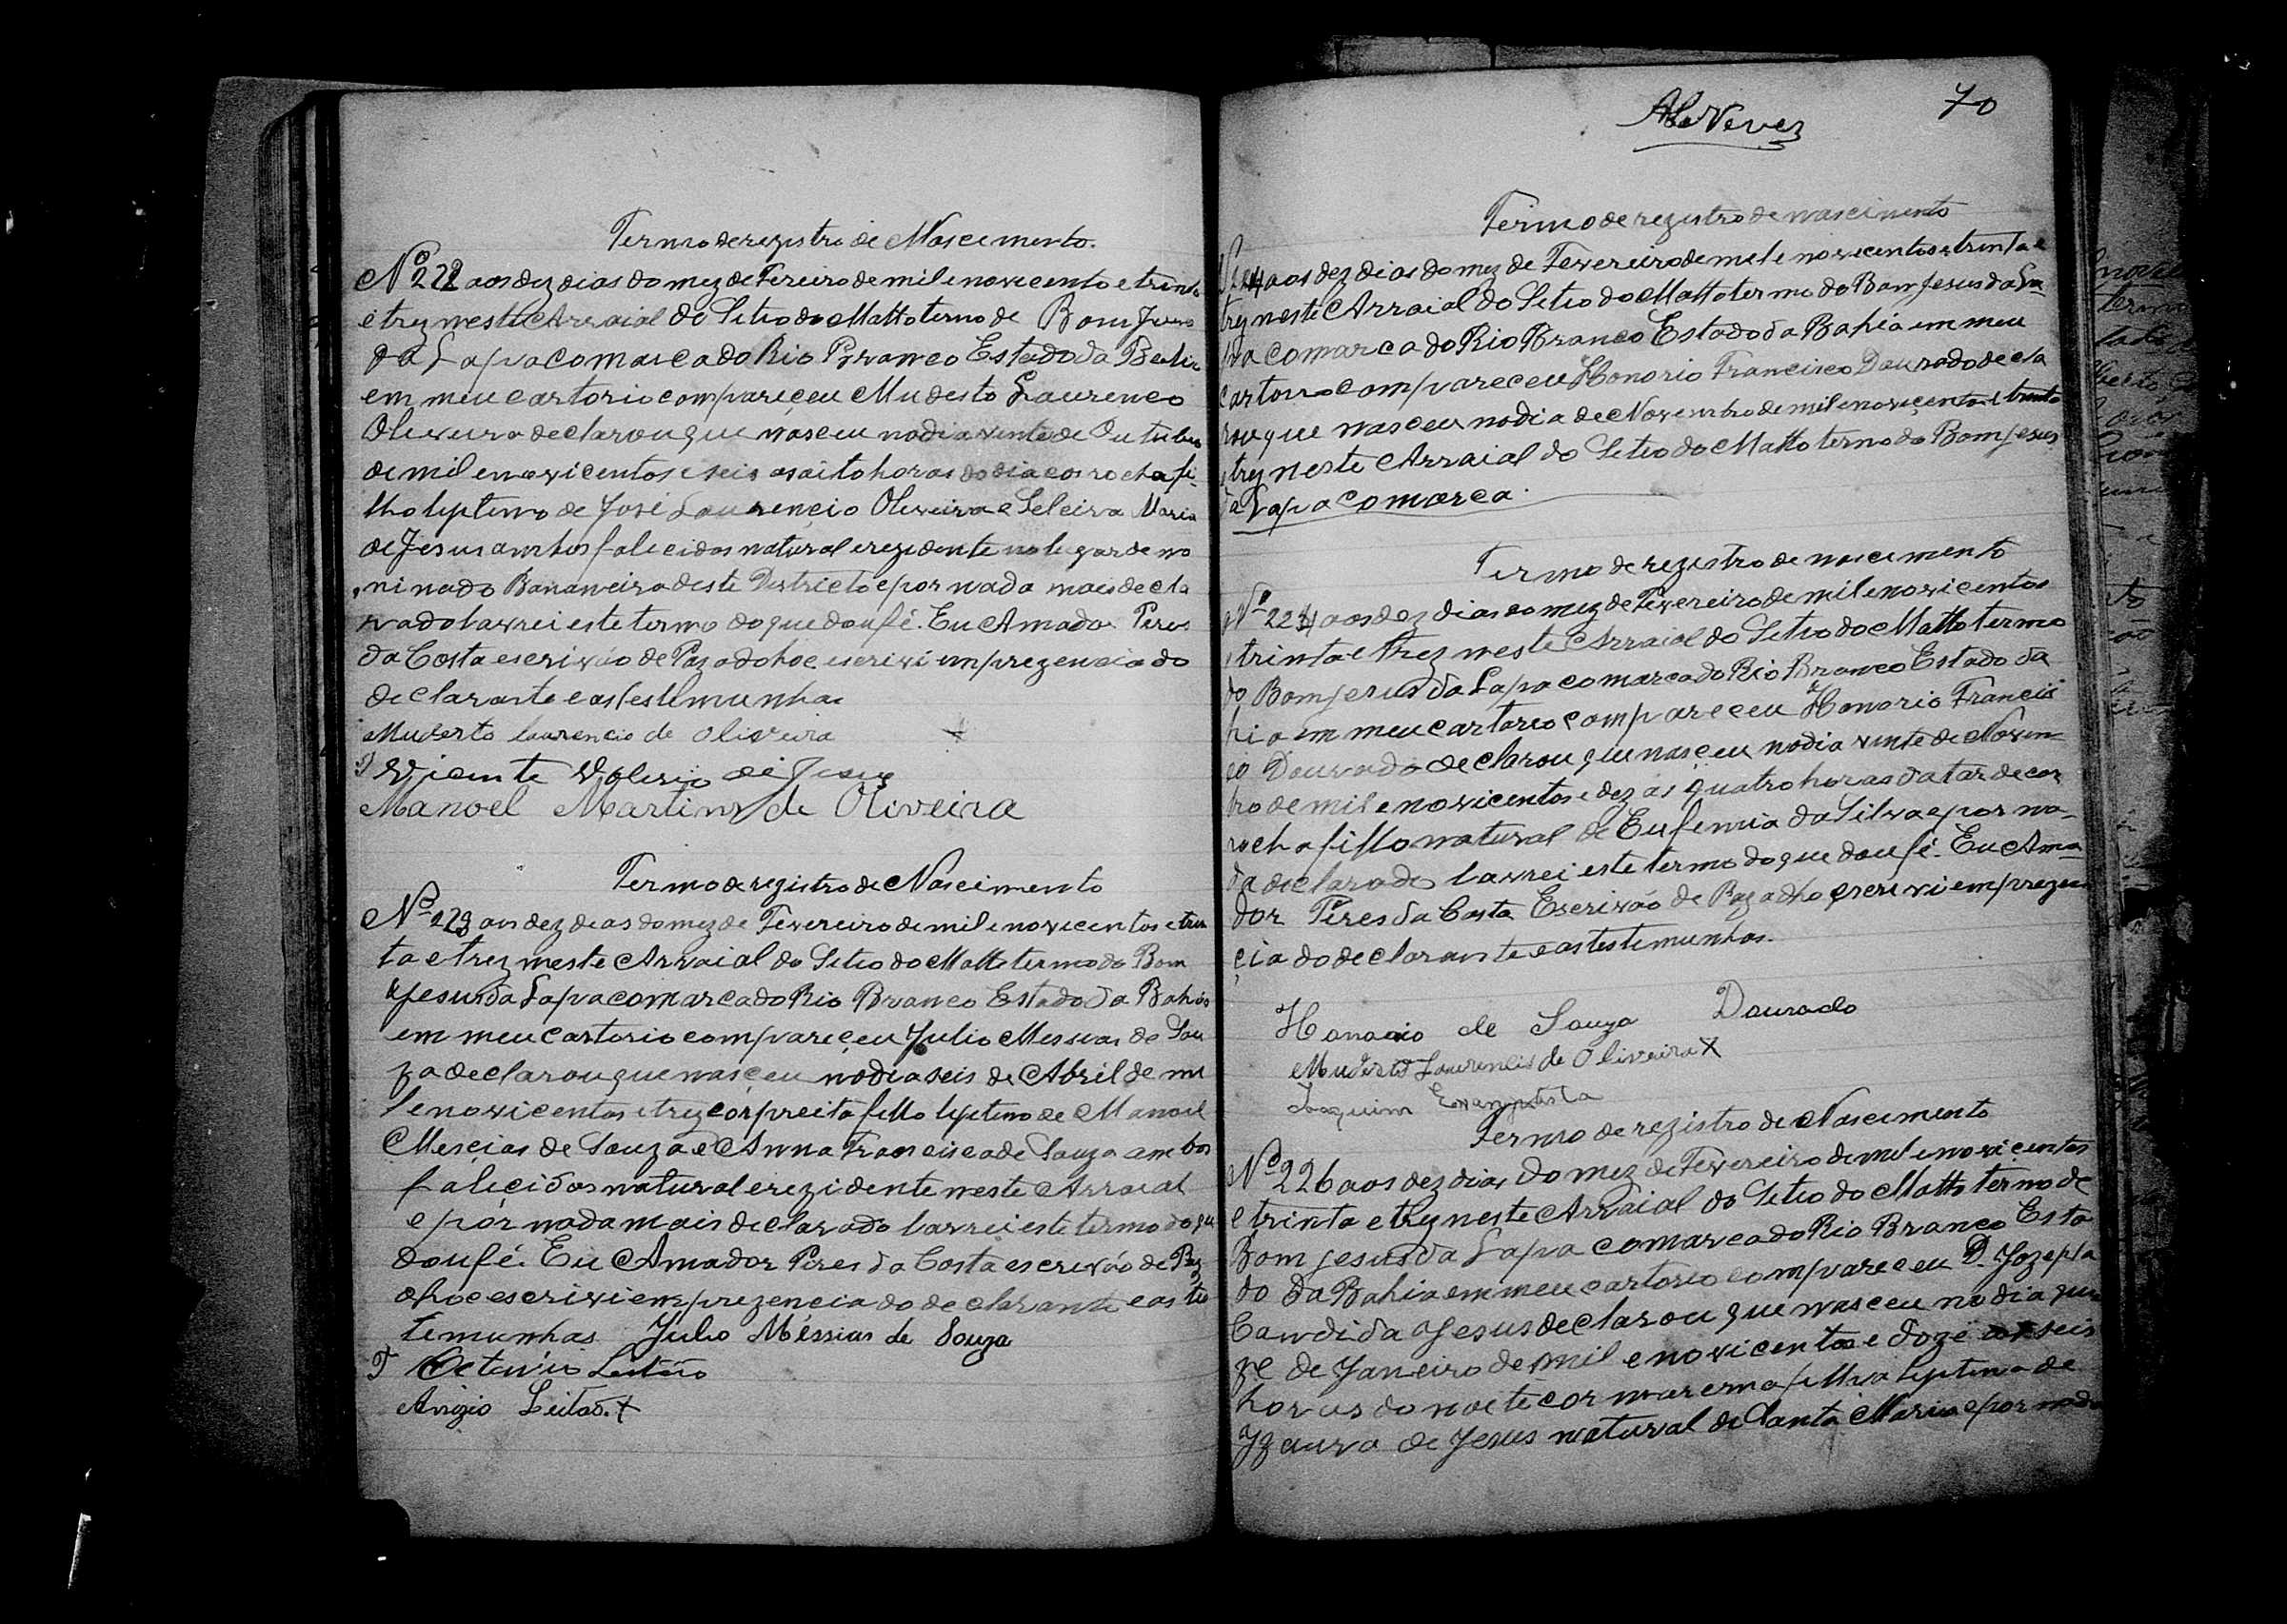 Termo de registro de Nascimento.
Nº 222 aos dez dias do mez de Fereiro de mil e novicento e trinta
e trez neste Arraial do Sitio do Matto termo de Bom Jesus
da Lapa comarca do Rio Branco Estado da Bahia
em meu cartorio compareçeu Mudesto Laurenco
Oliveira declarou que nasceu no dia vinte de Outubro
de mil e novicentos e seis as oito horas do dia cor rocha fi-
lho ligitimo de José Laurencio Oliveira e Seleira Maria
de Jesus ambos falicidos natural e rezidente no lugar deno
minado Bananeira deste Districto e por nada mais decla
rado lavrei este termo do que dou fé. Eu Amador Peres
da Costa escrivão de Paz a dhoc escrivi em prezencia do
declarante e as testemunhas
Muderto laurencio de oliveira
Vicente Valerio de Jesus
Manoel Martins de Oliveira
Termo de registro de Nascimento
Nº 223 aos dez dias do mez de Fevereiro de mil e novicentos e trin
ta e trez neste Arraial do Sitio do Matto termo do Bom
Jesus da Lapa comarca do Rio Branco Estado da Bahia
em meu cartorio compareçeu Julio Messias de Sou
za declarou que nasçeu no dia seis de Abril de mi
l e novicentos e trez côr preita filho ligitimo de Manoel
Mesçias de Souza e Anna Francisca de Souza ambos
faliçidos natural e rezidente neste Arraial
e por nada mais declarado lavrei este termo do qu
dou fé. Eu Amador Peres da Costa escrivão de Paz
adhoc escrivi em prezencia do declarante e as tes
temunhas Julio Méssias de Souza
T Octavio Leitão
Anizio Leitão. +
70
A. Neves
Termo de registro de nascimento
Nº 224 aos dez dias do mez de Fevereiro de mil e novicentos e trinta e
trez neste Arraial do Sitio do Matto termo do Bom Jesus da La-
pa comarca do Rio Branco Estado da Bahia em meu
cartorio compareceu Honorio Francisco Dourado decla
rou que nasceu no dia de Novembro de mil e novicentos e trinta
e trez neste Arraial do Sitio do Matto termo do Bom Jesus
da Lapa comarca.
Termo de registro de nascimento
Nº 224 aos dez dias do mez de Fevereiro de mil e novicentos
e trinta e trez neste Arraial do Sitio do Matto termo
do Bom Jesus da Lapa comarca do Rio Branco Estado da
hia em meu cartorio compareceu Honorio Francis
co Dourado declarou que nasçeu no dia vinte de Novem
bro de mil e novicentos e dez as quatro horas da tarde cor
rocha filho natural de Eufemia da Silva e por na-
da declarado lavrei este termo do que dou fé. Eu Ama-
dor Peres da Costa Escrivão de Paz adhoc escrivi em prezen
çia do declarante e as testemunhas.
Honorio de Souza Dourado
Muderto Laurencio de Oliveira X
Joaquim Evangelista
Termo de registro de Nascimento
Nº 226 aos dez dias do mez de Fevereiro de mil e novicentos
e trinta e trez neste Arraial do Sitio do Matto termo de
Bom Jesus da Lapa comarca do Rio Branco Esta
do da Bahia em meu cartorio compareceu D. Jozepha
Candida Jesus declarou que nasceu no dia quin
ze de Janeiro de mil e novicentos e doze as seis
horas da noite cor morena filha ligitima de
Izaura de Jesus natural de Santa Maria e por nada